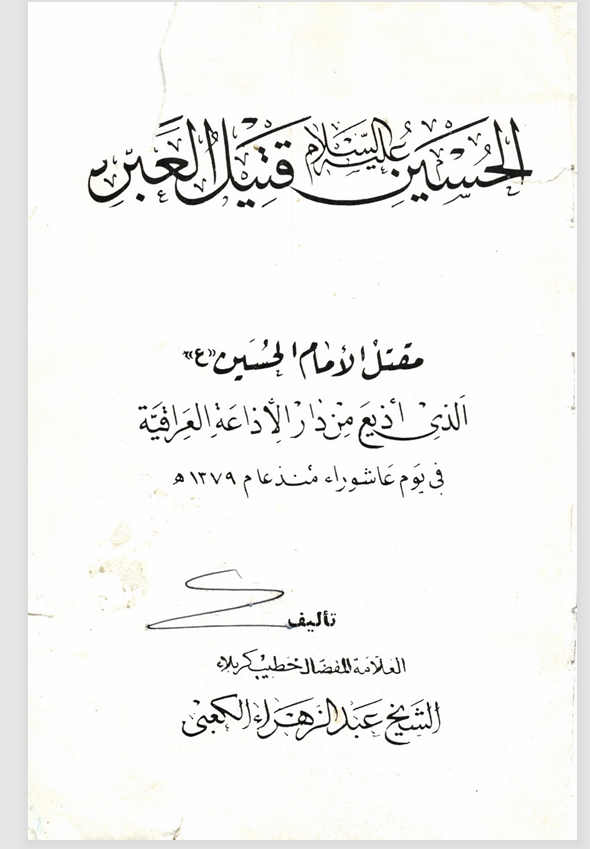 الحُسَين عليه السَّلام قتيل العَبرة
مقتل الإمام الحُسَين «ع»
الَذي أُذيعَ مِن دَار الإِذاعَة العِراقيَّة
في يَوم عَاشوراء مُنذ عام ١٣٧٩ هـ
تأليف
العلّامة المفضال خطيب كربلاء
الشَيخ عَبد الزهَراء الكعبي